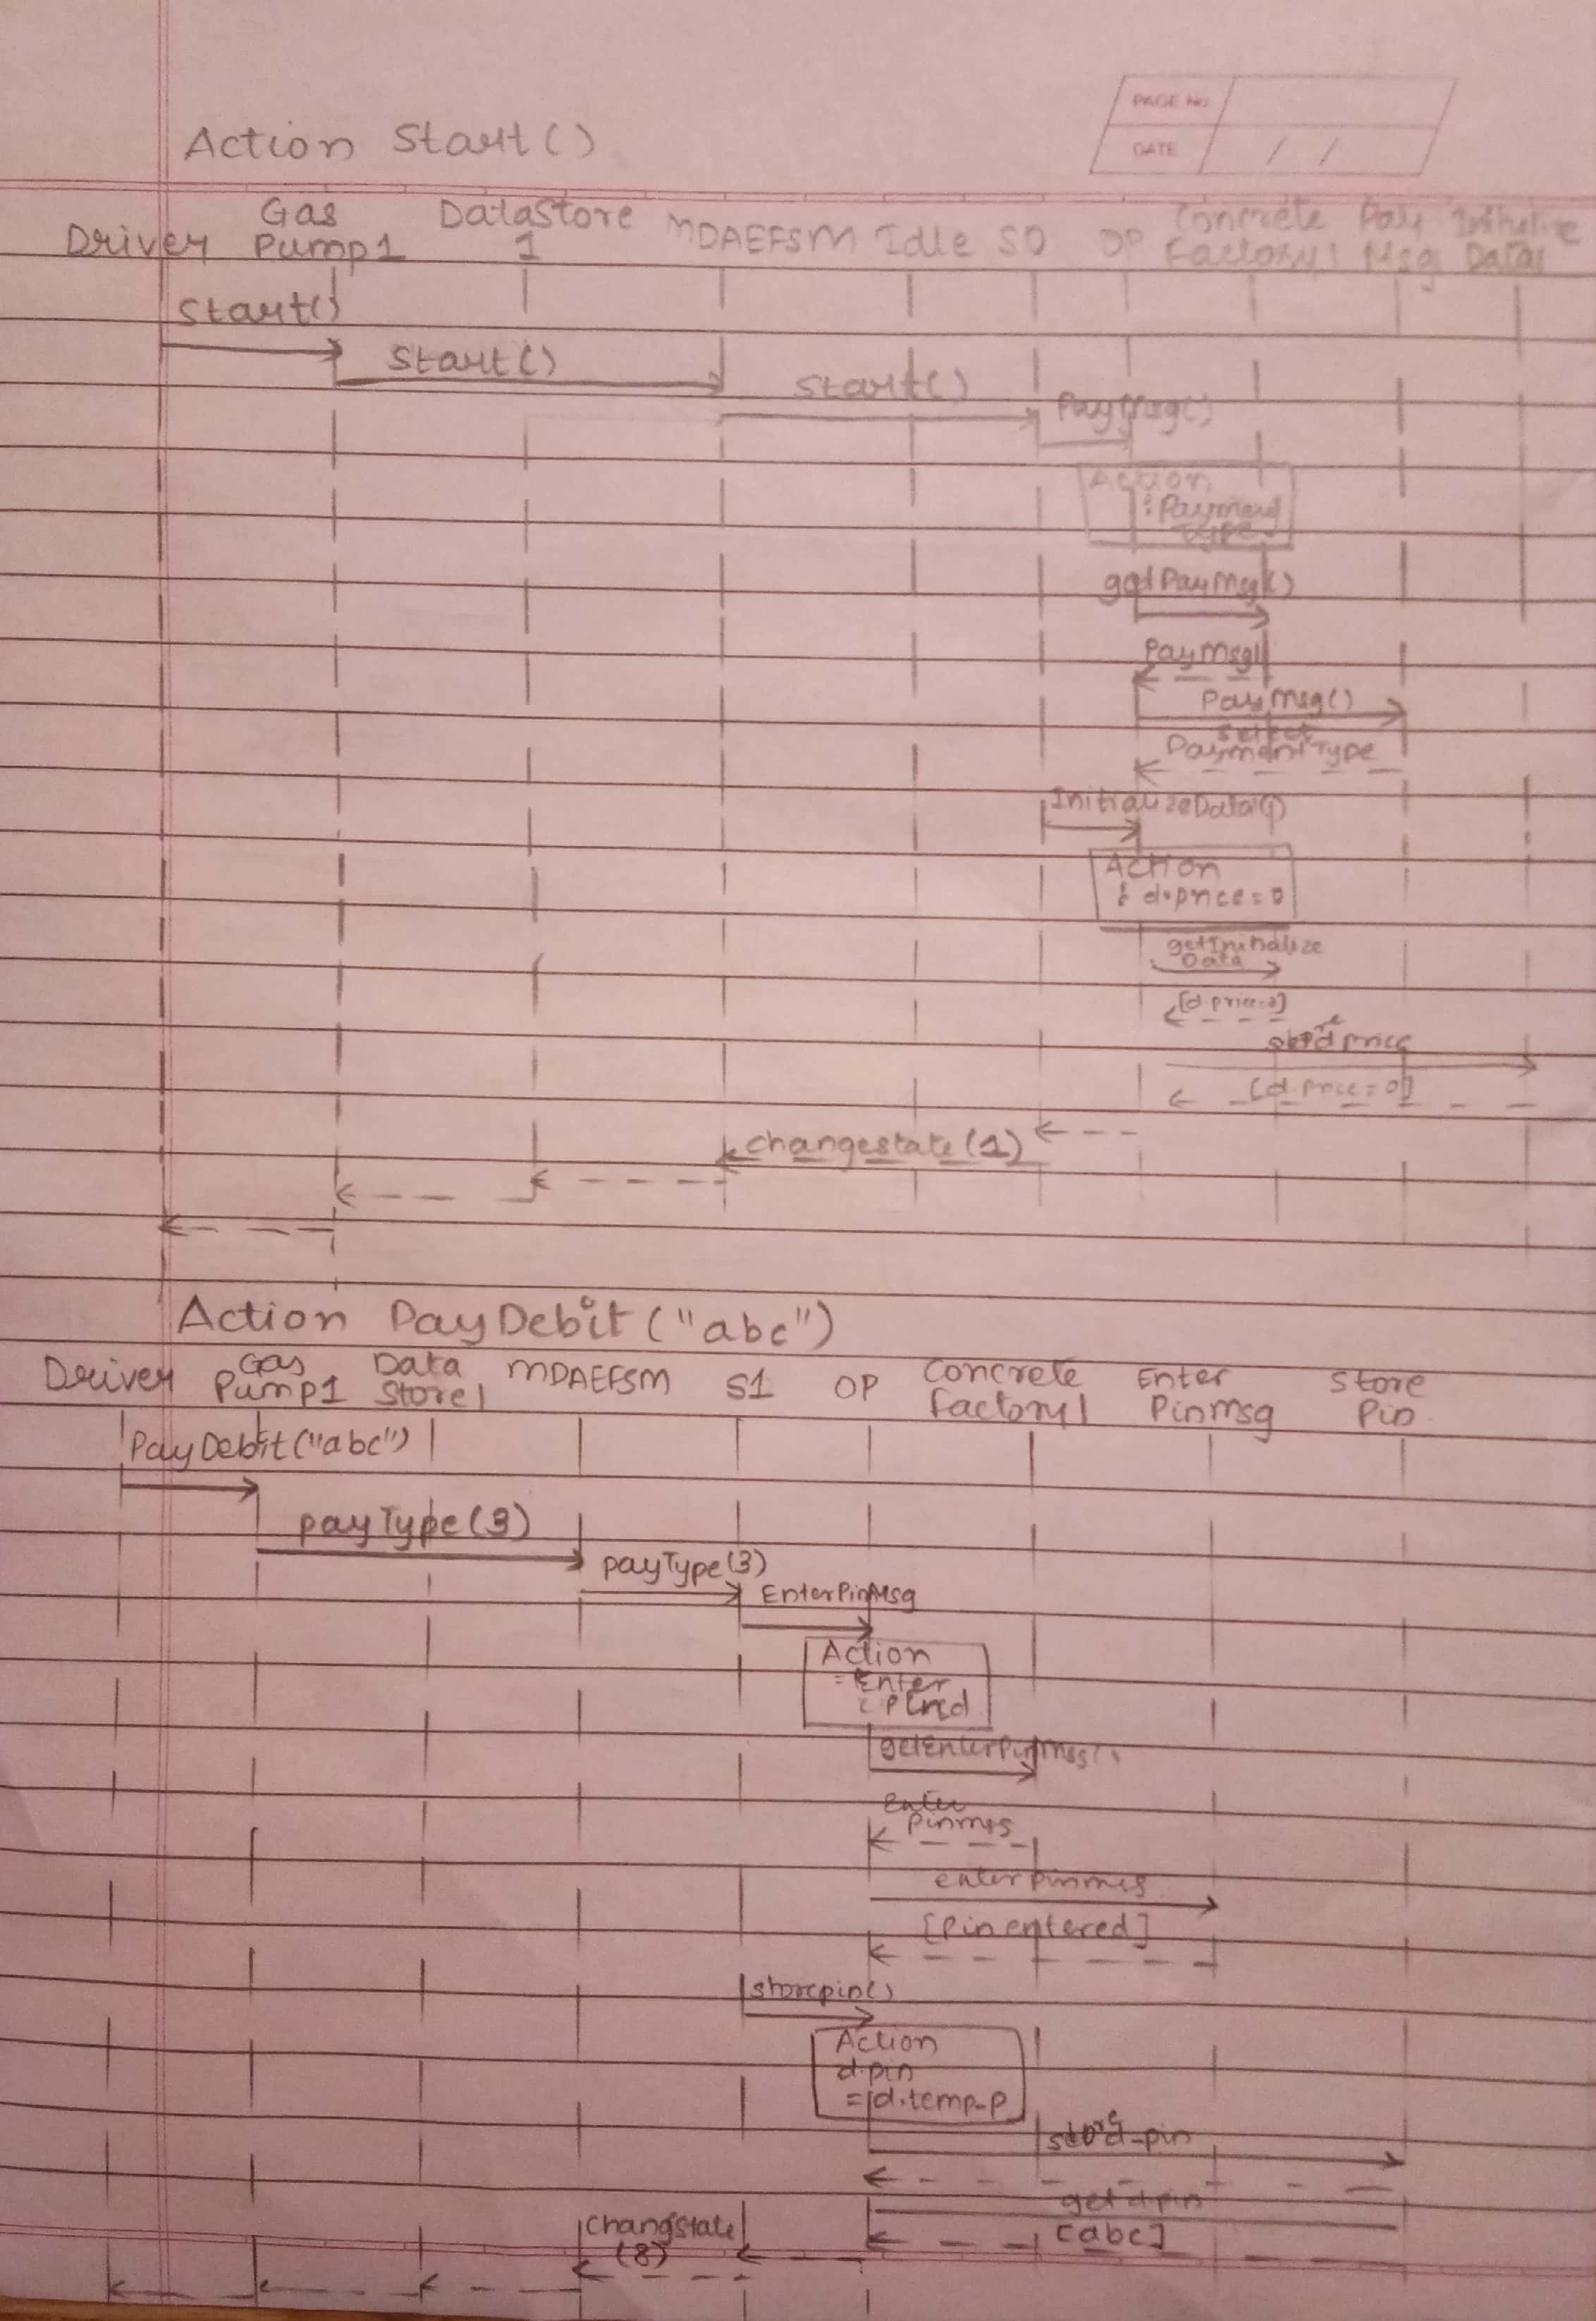 PAGE No
DATE / /
Action Start()
Driver Gas Pump1 DataStore 1 MDAEFSM Idle S0 OP Concrete Factory1 Pay Msg Initialize Data1
Start()
Start()
Start()
PayMsg()
Action
: Payment
Type
getPayMsg()
PayMsg1
PayMsg()
Select
Payment Type
InitializeData()
Action
: d.price = 0
getInitialize
Data
[d.price=0]
d price
[d.price = 0]
changestate(1)
Action PayDebit("abc")
Driver Gas Pump1 Data Store1 MDAEFSM S1 OP Concrete Factory1 Enter PinMsg Store Pin
PayDebit("abc")
payType(3)
payType(3)
EnterPinMsg
Action
= Enter
getEnterPinMsg()
enter
pinmsg
enterpinmsg
[Pin entered]
storepin()
Action
d.pin
= d.temp_p
store d-pin
get d pin
[abc]
Changstate
(8)